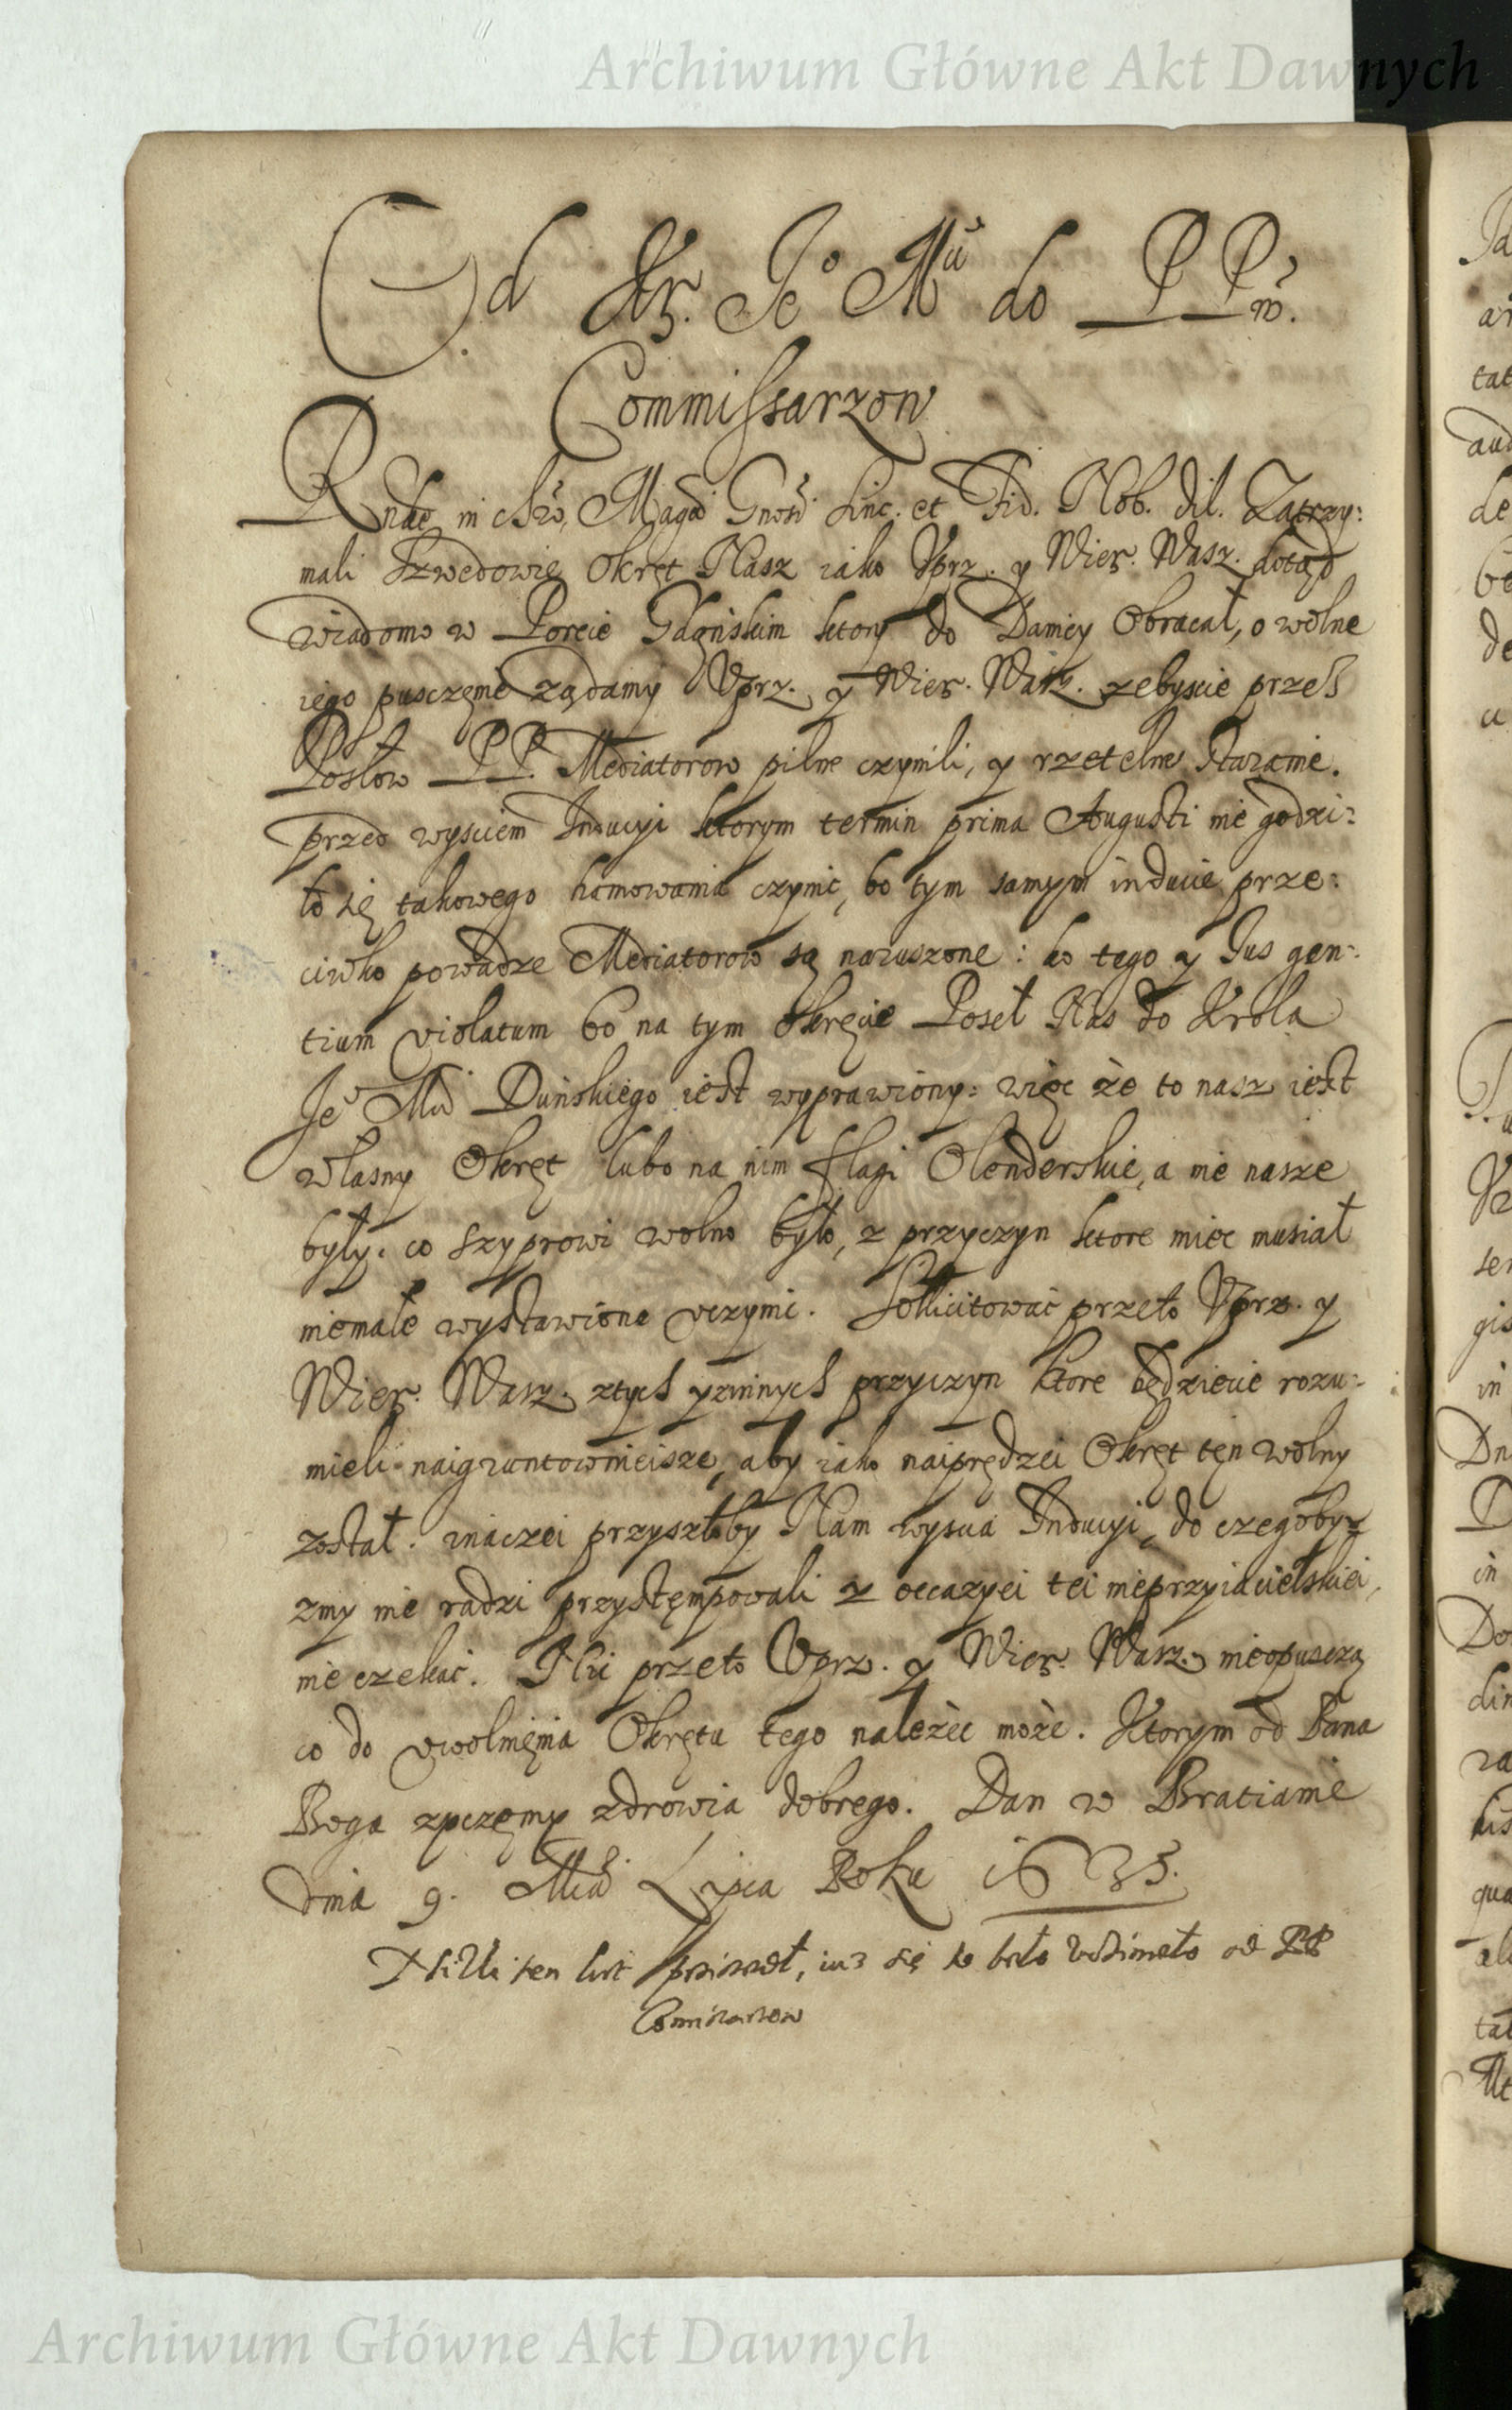 Archiwum Główne Akt Dawnych
Od Kr. Je° Mu do PP.
Commissarzow
Rnde in Chro, Magci Gnosi sinc. et Fid. Nob. dil. Zatrzy:
mali Szwedowie Okręt Nasz iako Vprz. y Wier. Wasz. dotąd
wiadomo w Porcie Gdanskim ktory do Daniey Obracał, o wolne
iego pusczęnie ządamy Vprz. y Wier. Wasz. zebyscie przes
Posłow PP. Mediatorow pilne czynili, y rzetelne staranie.
przed wysciem Inducyi ktorym termin prima Augusti nie godzi:
ło się takowego hamowania czynic, bo tym samym inducie prze:
ciwko powadze Mediatorow są naruszone: do tego y Jus gen:
tium violatum bo na tym Okręcie Poseł Nas do Krola
Je° Mci Duńskiego iest wyprawiony: więc że to nasz iest
własny Okręt lubo na nim flagi Olenderskie, a nie nasze
były. co Szyprowi wolno było, z przyczyn ktore miec musiał
niemałe wystawione vczynic. Sollicitować przeto Vprz. y
Wier. Wasz. ztych yzinnych przyczyn ktore będziecie rozu:
mieli naigruntownieisze, aby iako naiprędzei Okręt tęn wolny
został. inaczei przyszłoby Nam wyscia Inducyi, do czegoby:
zmy nie radzi przystęmpowali z occazyei tei nieprzyiacielskiei,
nie czekać. Nic przeto Vprz. y Wier. Wasz. nieopusczą
co do vwolnięnia Okrętu tego należeć może. Ktorym od Pana
Boga zyczęmy zdrowia dobrego. Dan w Bratianie
dnia 9. Mca Lipca Roku 1635.
Niżli ten list prziszedł, iuż się to beło vczineło od PP
Comisarzow
Archiwum Główne Akt Dawnych